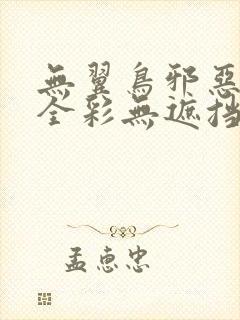 無翼鳥邪惡
全彩無遮挡
孟惠忠